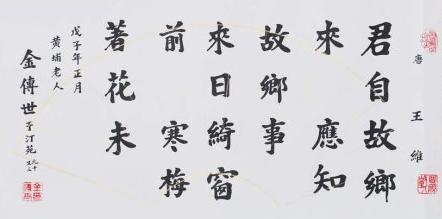 唐 王維
君自故鄉
來 應知
故鄉事
來日綺窗
前 寒梅
著花未
戊子年正月
黃埔老人
金傳世 于汀苑
九十又三